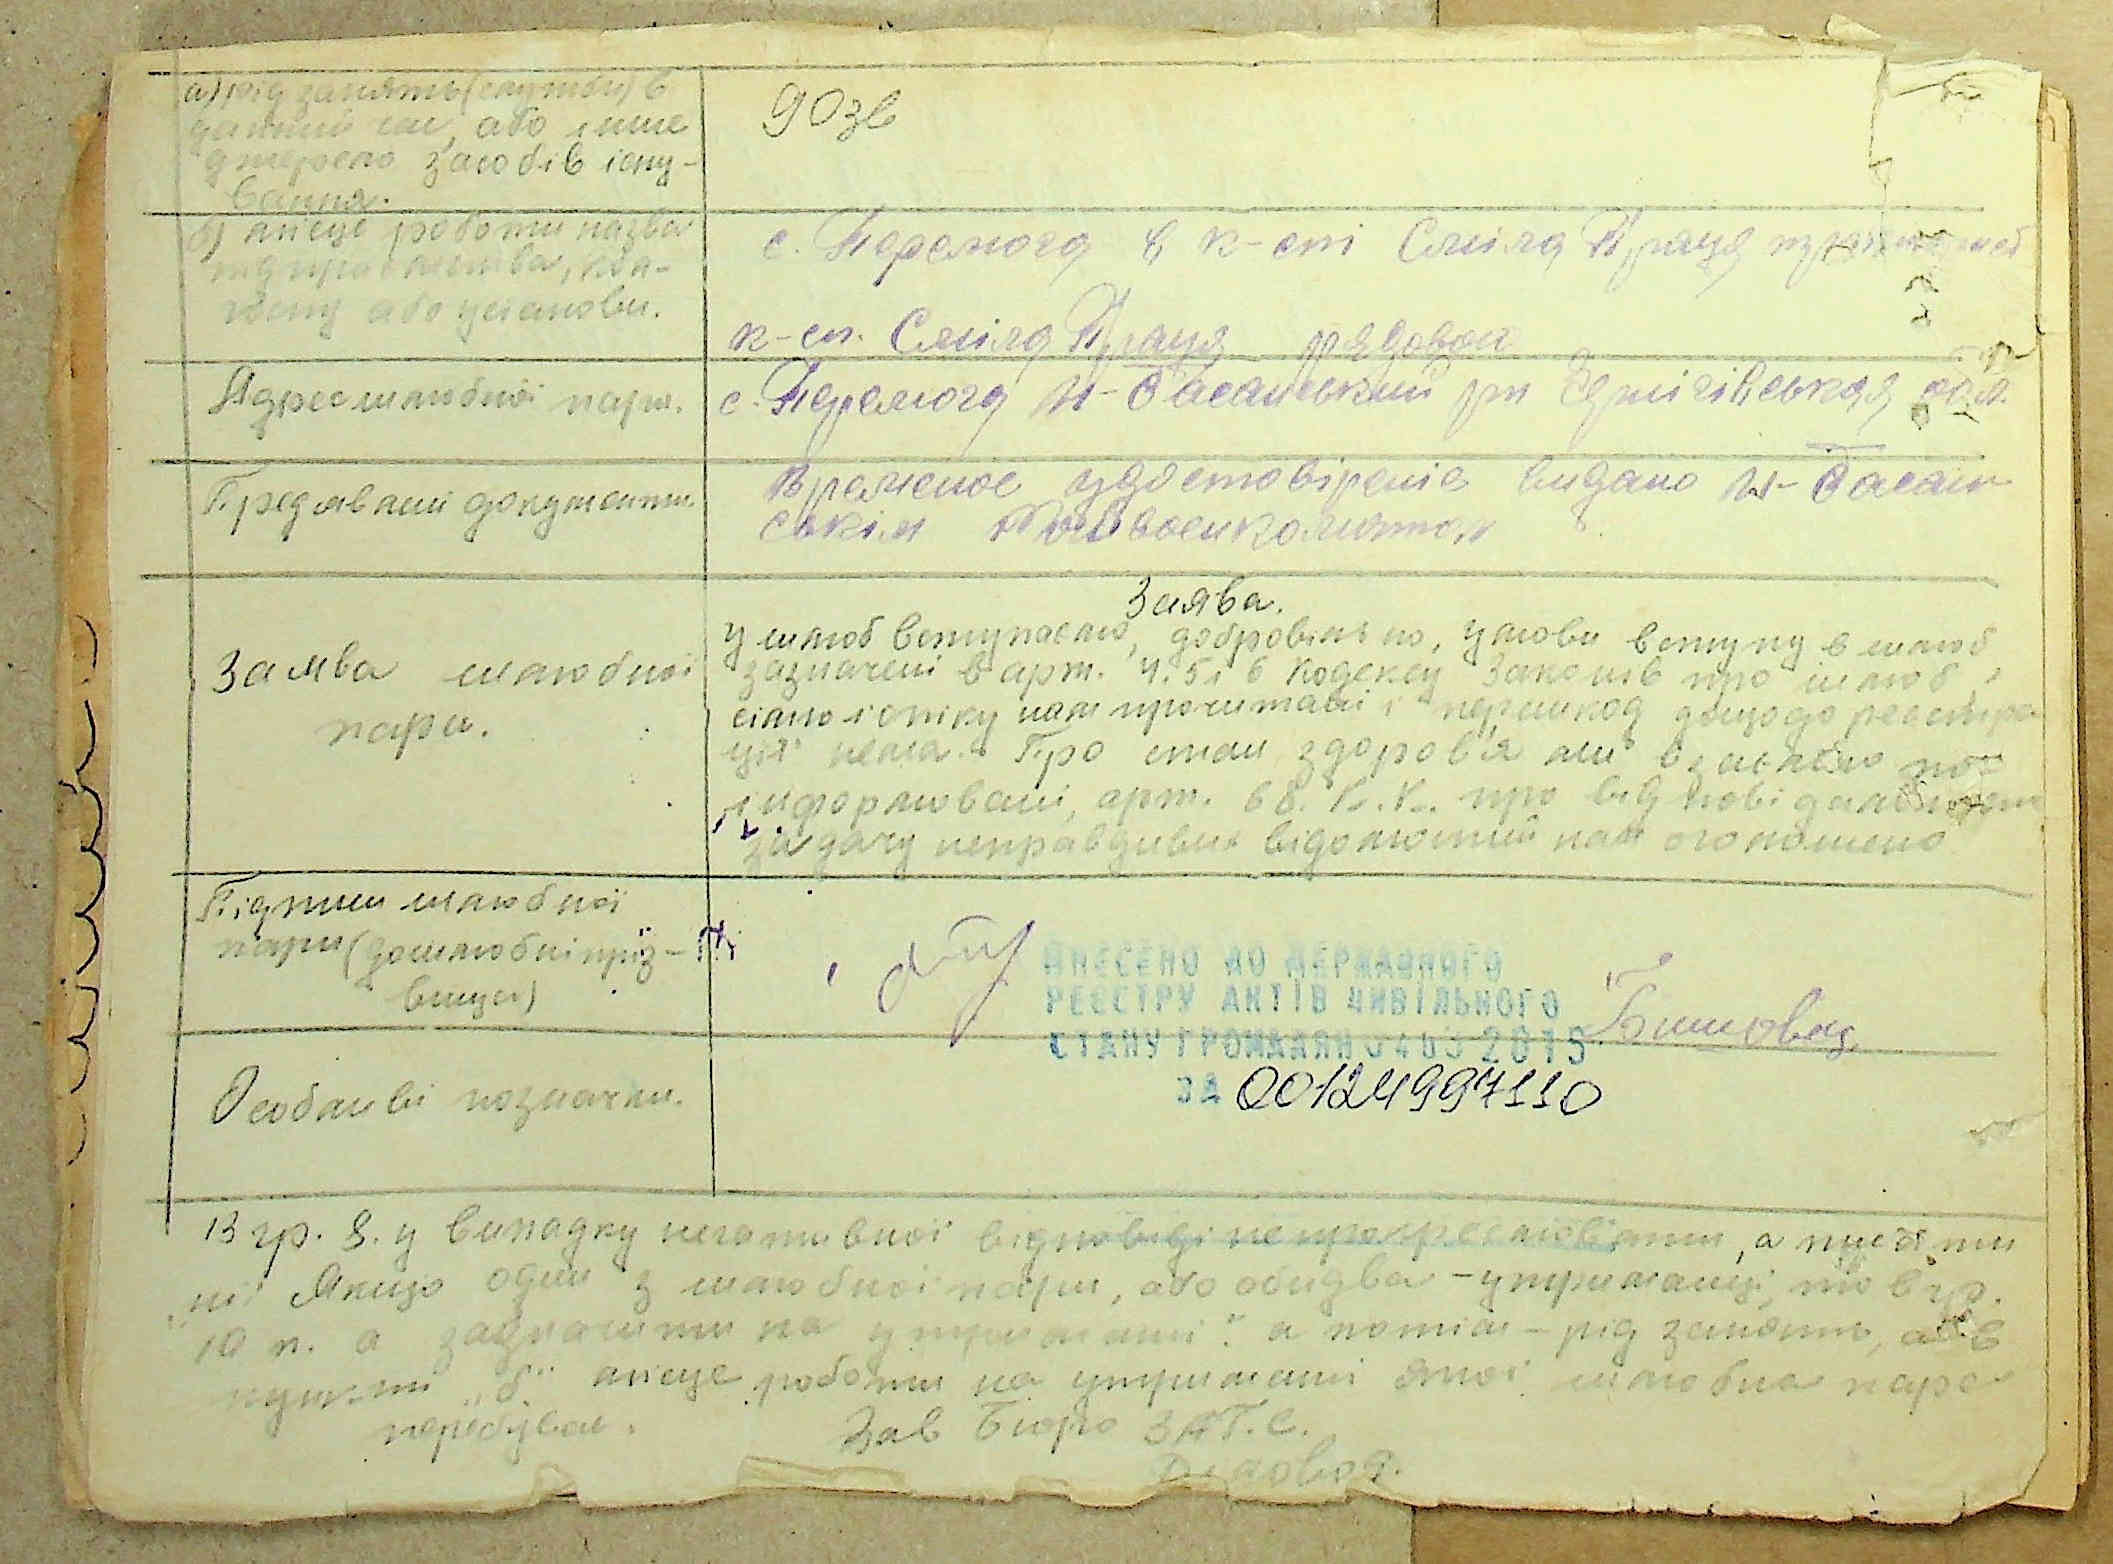 а) рід занять (служби) в
даний час, або інше
джерело засобів існу-
вання.
90 зв
б) місце роботи назва
підприємства, кол-
госпу або установи.
с. Перемога в к-спі Сміла Праця
к-сп. Сміла Праця рядовой
Адрес шлюбної пари.
с. Перемога Н-Басанський рн Чернігівськая обл.
Предявлені документи.
Временое удостовіреніе видано Н-Басан
ськім Райвоенкоматом
Заява шлюбної
пари.
Заява.
У шлюб вступаємо, добровільно, умови вступу в шлюб
зазначені в арт. 4. 5 і 6 Кодексу Законів про шлюб,
сімю і опіку нам прочитані і перешкод до реєстра
ції нема. Про стан здоров'я ми взаємно по-
інформовані, арт. 68. К.К. про відповідальність
за дачу неправдивих відомостей нам оголошено
Підписи шлюбної
пари (дошлюбні пріз-
вища)
ВНЕСЕНО ДО ДЕРЖАВНОГО
РЕЄСТРУ АКТІВ ЦИВІЛЬНОГО
СТАНУ ГРОМАДЯН 2015
ЗА 00124997110
Бишовец
Особливі позначки.
В гр. 8. у випадку негативної відповіді не прокреслювати, а писати
ні Якщо один з шлюбної пари, або обидва - утриманці, то в гр.
10 п. а зазначити на утримані". а потім - рід занять, а в
пункті „б" місце роботи на утримані якої шлюбна пара
перебуває.
Зав Бюро ЗАГ.С.